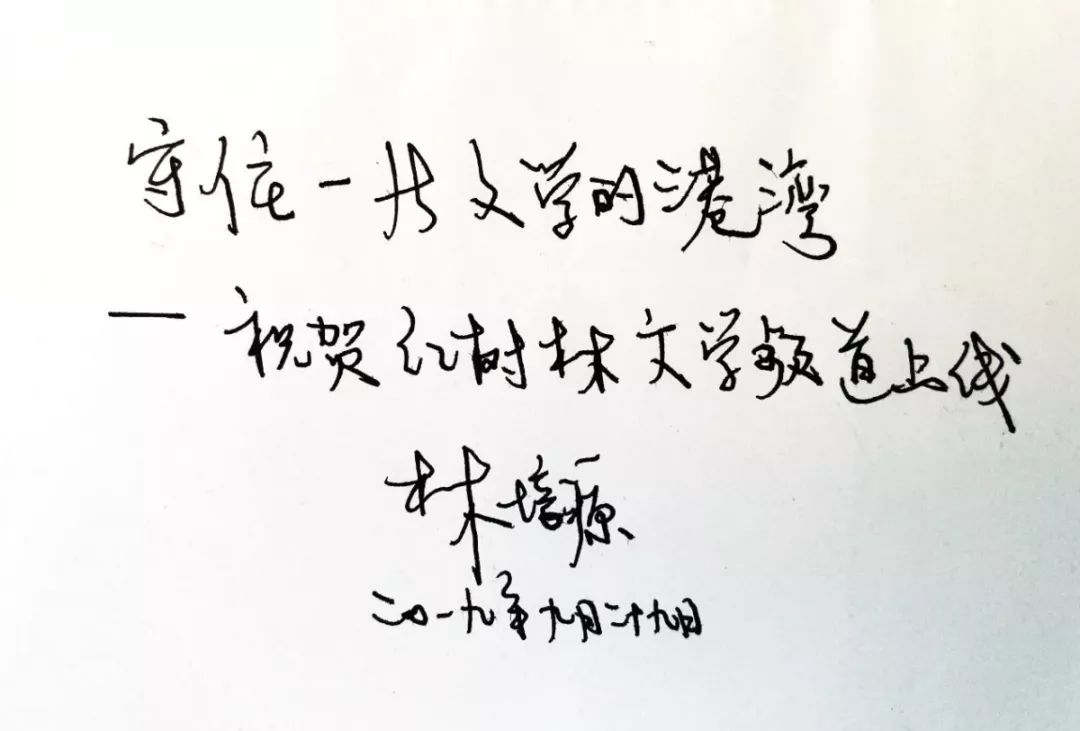 守住一片文学的港湾
— 祝贺红树林文学频道上线
林培源
二〇一九年九月二十九日